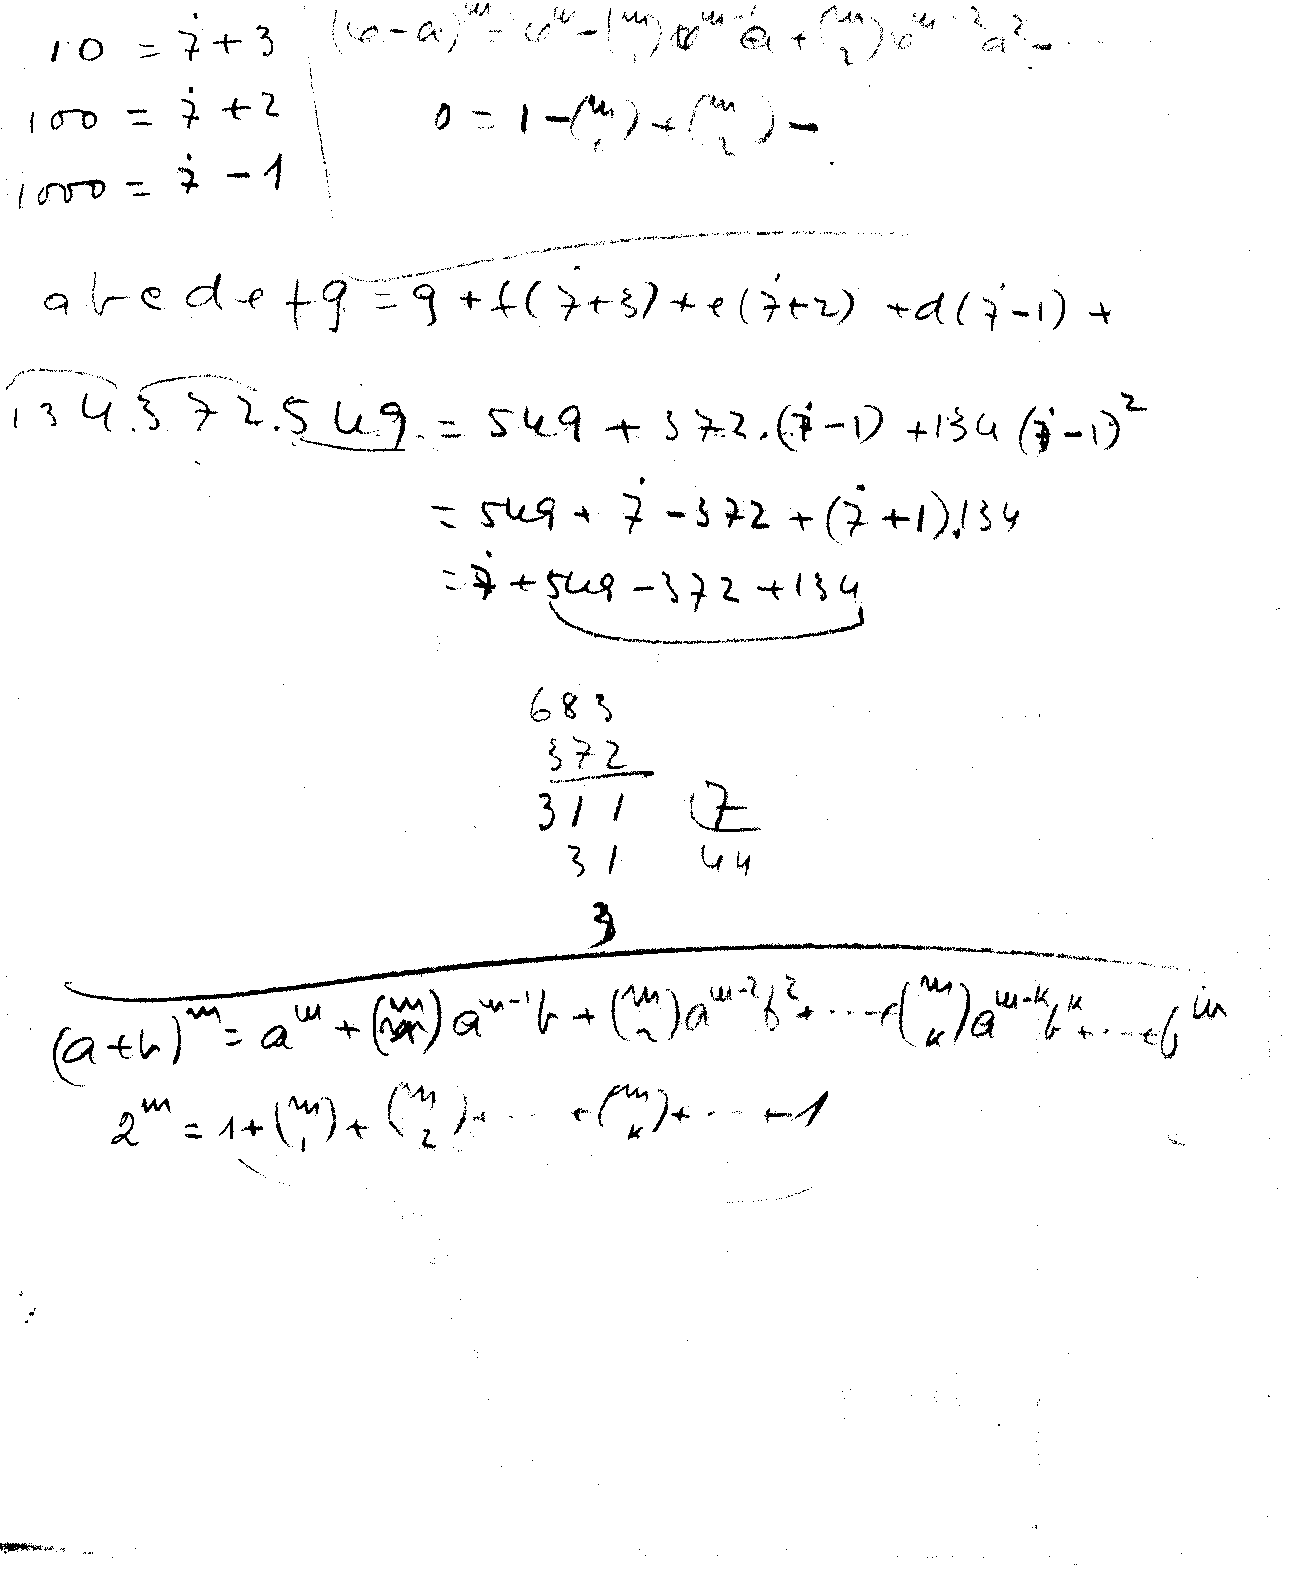 10 = 7̇ + 3
100 = 7̇ + 2
1000 = 7̇ - 1
(b-a)^m = b^m - (m 1) b^m-1 a + (m 2) b^m-2 a^2 - ...
0 = 1 - (m 1) + (m 2) -
abcdefg = g + f(7̇+3) + e(7̇+2) + d(7̇-1) +
134.372.549. = 549 + 372.(7̇-1) + 134 (7̇-1)^2
= 549 + 7̇ - 372 + (7̇+1).134
= 7̇ + 549 - 372 + 134
683
372
311 7
31 44
3
(a+b)^m = a^m + (m) a^m-1 b + (m 2) a^m-2 b^2 + ... + (m k) a^m-k b^k + ... + b^m
2^m = 1 + (m 1) + (m 2) + ... + (m k) + ... + 1